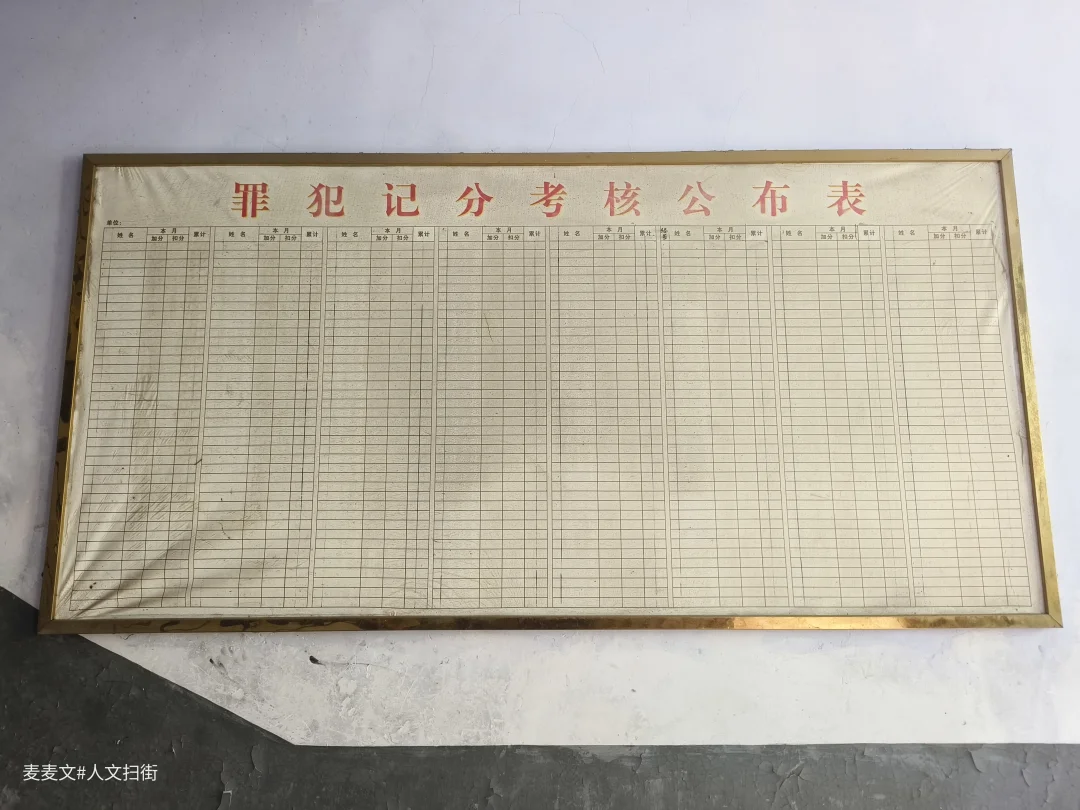 罪犯记分考核公布表
单位：
姓名 本月 累计 姓名 本月 累计 姓名 本月 累计 姓名 本月 累计 姓名 本月 累计 姓名 本月 累计 姓名 本月 累计 姓名 本月 累计
加分 扣分 加分 扣分 加分 扣分 加分 扣分 加分 扣分 加分 扣分 加分 扣分 加分 扣分
麦麦文#人文扫街